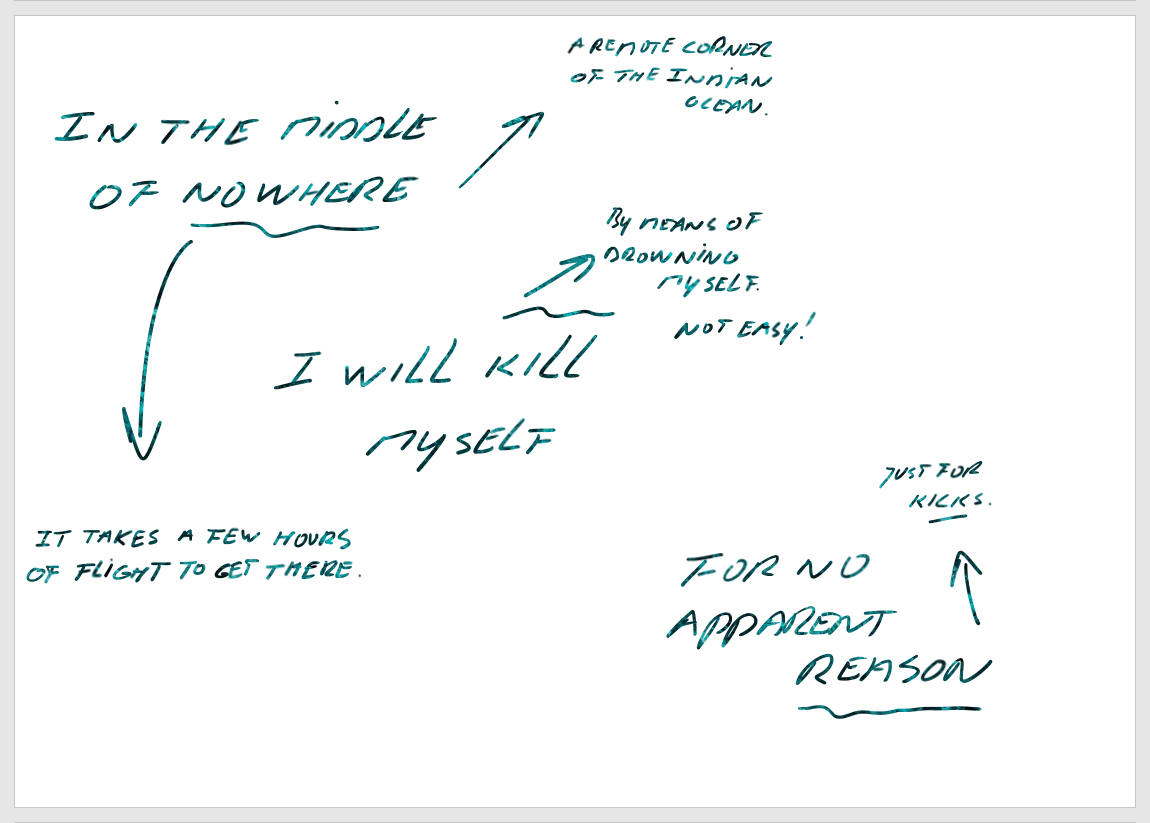 A REMOTE CORNER
OF THE INDIAN
OCEAN.
IN THE MIDDLE
OF NOWHERE
BY MEANS OF
DROWNING
MYSELF.
NOT EASY!
I WILL KILL
MYSELF
JUST FOR
KICKS.
IT TAKES A FEW HOURS
OF FLIGHT TO GET THERE.
FOR NO
APPARENT
REASON